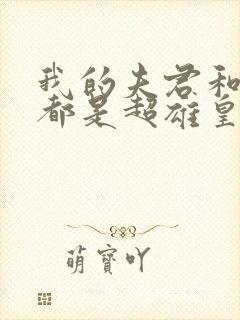 我的夫君和
都是超雄皇
萌寶吖